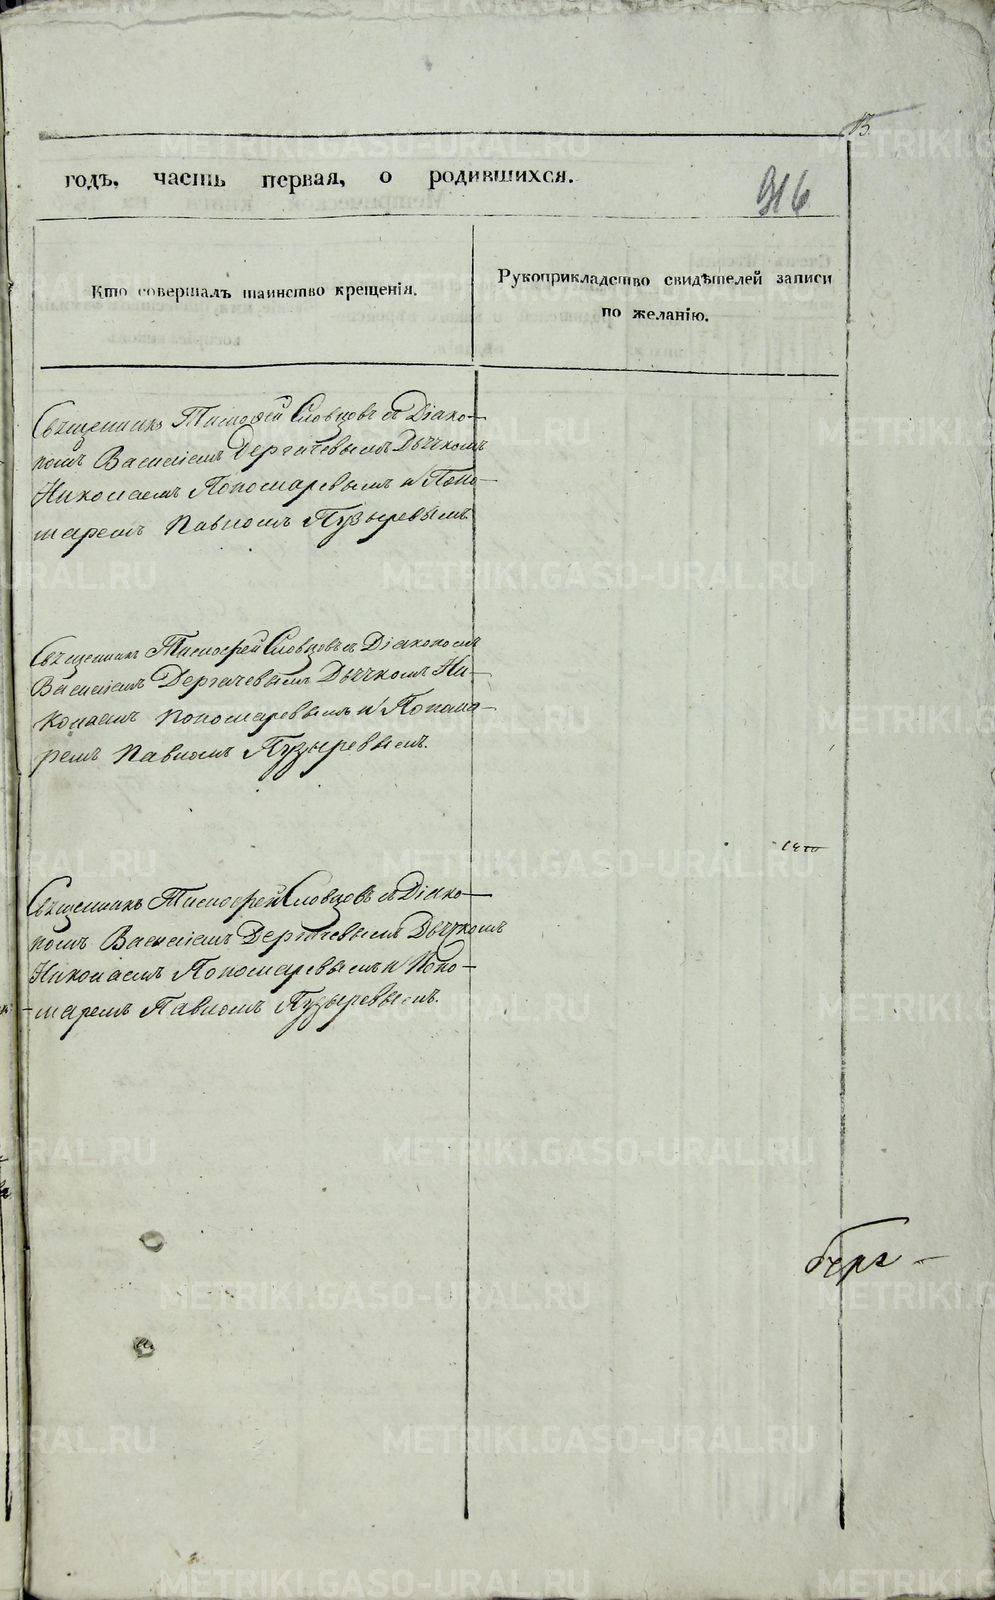 15.
годъ, часть первая, о родившихся.
916
Кто совершалъ таинство крещенія.
Рукоприкладство свидѣтелей записи
по желанію.
Священникъ Тимофей Словцовъ съ Діако-
номъ Василіемъ Дергачевымъ Дьячкомъ
Николаемъ Пономаревымъ и Поно-
маремъ Павломъ Пузыревымъ
Священникъ Тимофей Словцовъ съ Діакономъ
Василіемъ Дергачевымъ Дьячкомъ Ни-
колаемъ Пономаревымъ и Понама-
ремъ Павломъ Пузыревымъ.
Священникъ Тимофей Словцовъ съ Діако-
номъ Василіемъ Дергачевымъ Дьячкомъ
Николаемъ Пономаревымъ и Поно-
-маремъ Павломъ Пузыревымъ.
METRIKI.GASO-URAL.RU